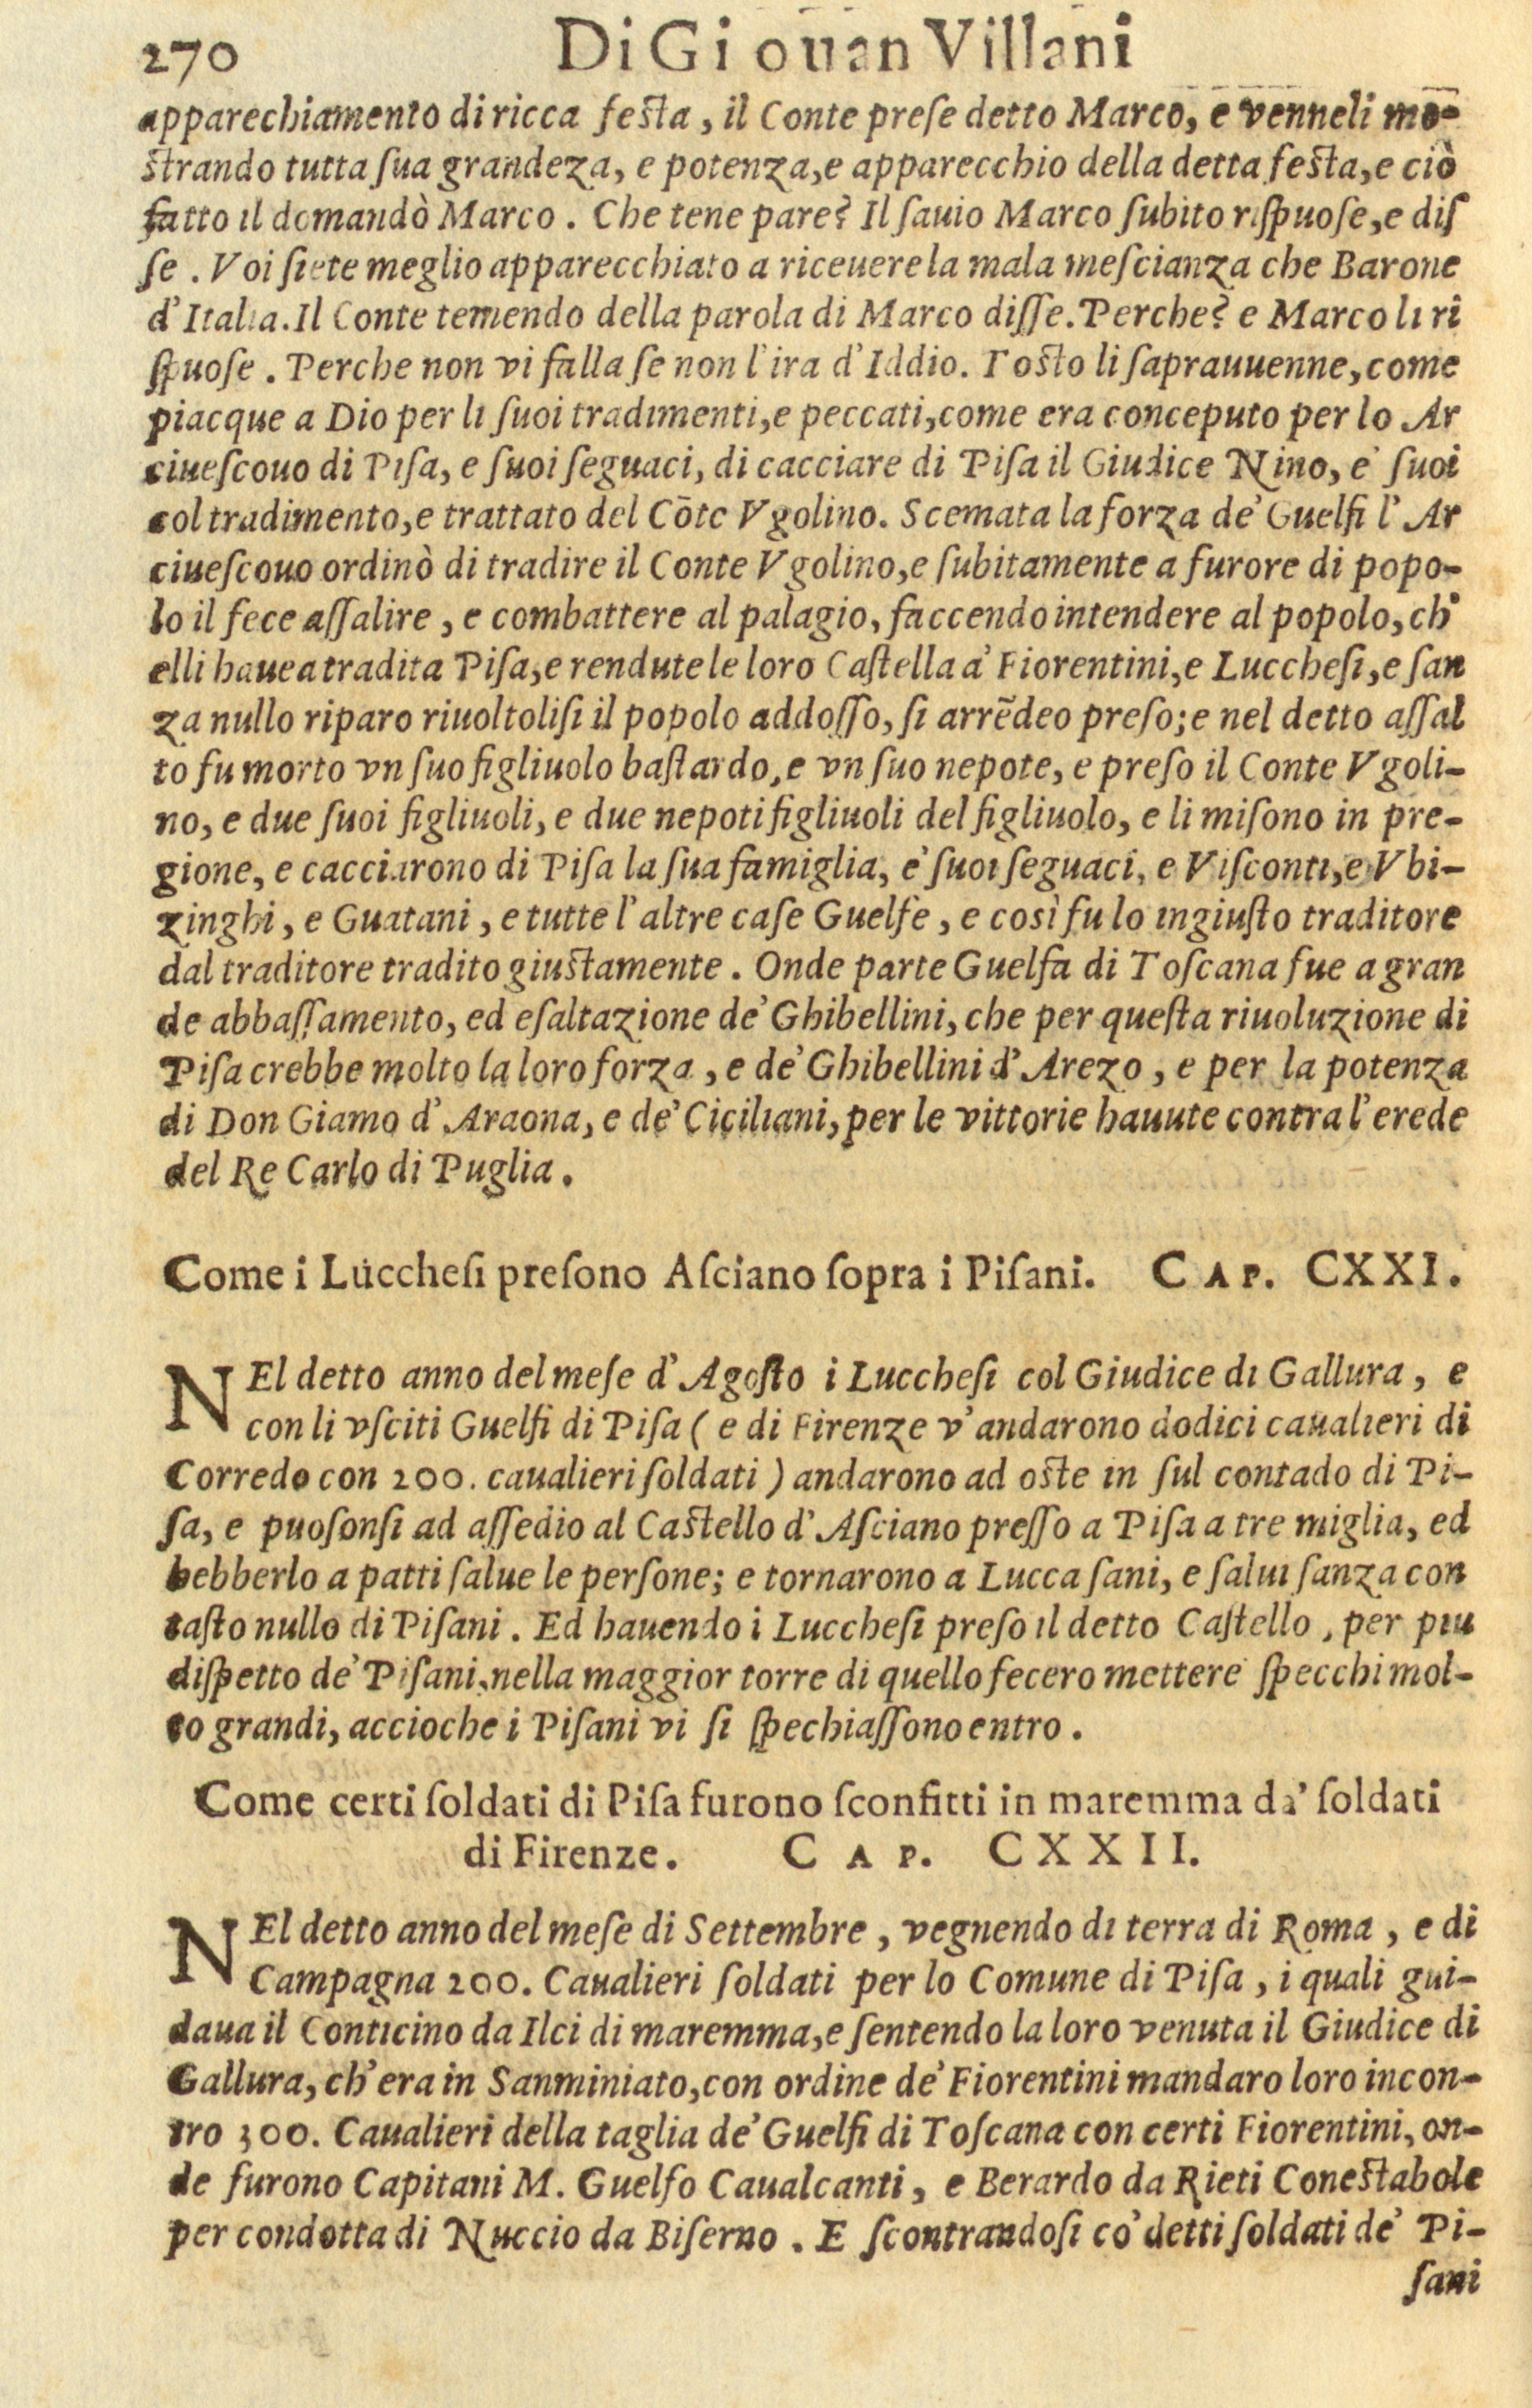 270 Di Giouan Villani
apparechiamento di ricca festa, il Conte prese detto Marco, e venneli mo-
strando tutta sua grandeza, e potenza, e apparecchio della detta festa, e ciò
fatto il domandò Marco. Che tene pare? Il sauio Marco subito rispuose, e dis
se. Voi siete meglio apparecchiato a riceuere la mala mescianza che Barone
d'Italia. Il Conte temendo della parola di Marco disse. Perche? e Marco li ri
spuose. Perche non vi falla se non l'ira d'Iddio. Tosto li soprauuenne, come
piacque a Dio per li suoi tradimenti, e peccati, come era conceputo per lo Ar
ciuescouo di Pisa, e suoi seguaci, di cacciare di Pisa il Giudice Nino, e' suoi
col tradimento, e trattato del Cōte Vgolino. Scemata la forza de' Guelfi l'Ar
ciuescouo ordinò di tradire il Conte Vgolino, e subitamente a furore di popo-
lo il fece assalire, e combattere al palagio, faccendo intendere al popolo, ch'
elli hauea tradita Pisa, e rendute le loro Castella a' Fiorentini, e Lucchesi, e san
za nullo riparo riuoltolisi il popolo addosso, si arrēdeo preso; e nel detto assal
to fu morto vn suo figliuolo bastardo, e vn suo nepote, e preso il Conte Vgoli-
no, e due suoi figliuoli, e due nepoti figliuoli del figliuolo, e li misono in pre-
gione, e cacciarono di Pisa la sua famiglia, e' suoi seguaci, e Visconti, e Vbi-
zinghi, e Guatani, e tutte l'altre case Guelfe, e così fu lo ingiusto traditore
dal traditore tradito giustamente. Onde parte Guelfa di Toscana fue a gran
de abbassamento, ed esaltazione de' Ghibellini, che per questa riuoluzione di
Pisa crebbe molto la loro forza, e de' Ghibellini d'Arezo, e per la potenza
di Don Giamo d'Araona, e de' Ciciliani, per le vittorie hauute contra l'erede
del Re Carlo di Puglia.
Come i Lucchesi presono Asciano sopra i Pisani. CAP. CXXI.
NEl detto anno del mese d'Agosto i Lucchesi col Giudice di Gallura, e
con li vsciti Guelfi di Pisa (e di Firenze v'andarono dodici caualieri di
Corredo con 200. caualieri soldati) andarono ad oste in sul contado di Pi-
sa, e puosonsi ad assedio al Castello d'Asciano presso a Pisa a tre miglia, ed
hebberlo a patti salue le persone; e tornarono a Lucca sani, e salui sanza con
tasto nullo di Pisani. Ed hauendo i Lucchesi preso il detto Castello, per piu
dispetto de' Pisani, nella maggior torre di quello fecero mettere specchi mol-
to grandi, accioche i Pisani vi si spechiassono entro.
Come certi soldati di Pisa furono sconfitti in maremma da' soldati
di Firenze. CAP. CXXII.
NEl detto anno del mese di Settembre, vegnendo di terra di Roma, e di
Campagna 200. Caualieri soldati per lo Comune di Pisa, i quali gui-
daua il Conticino da Ilci di maremma, e sentendo la loro venuta il Giudice di
Gallura, ch'era in Sanminiato, con ordine de' Fiorentini mandaro loro incon-
tro 300. Caualieri della taglia de' Guelfi di Toscana con certi Fiorentini, on-
de furono Capitani M. Guelfo Caualcanti, e Berardo da Rieti Conestabole
per condotta di Nuccio da Biserno. E scontrandosi co' detti soldati de' Pi-
sani